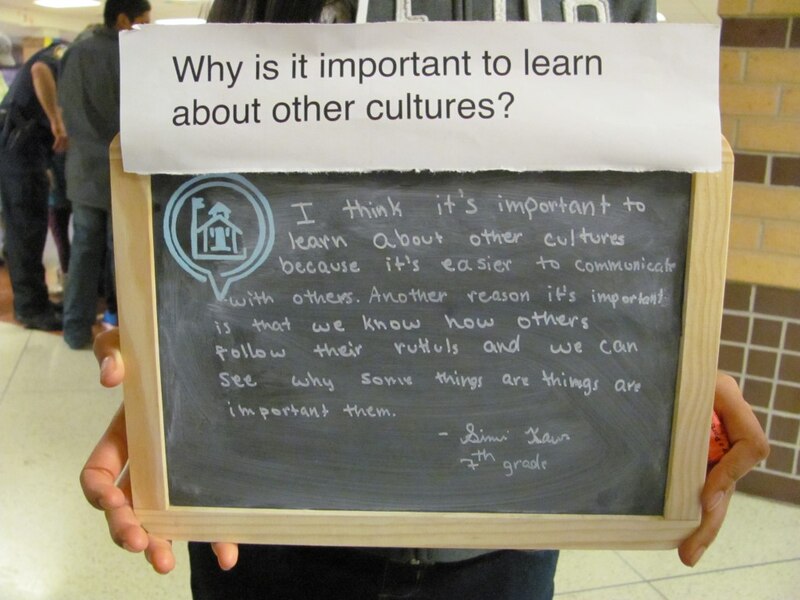 Why is it important to learn
about other cultures?
I think it's important to
learn about other cultures
because it's easier to communicate
with others. Another reason it's important
is that we know how others
follow their rutluls and we can
see why some things are things are
important them.
- Simi
7th grade